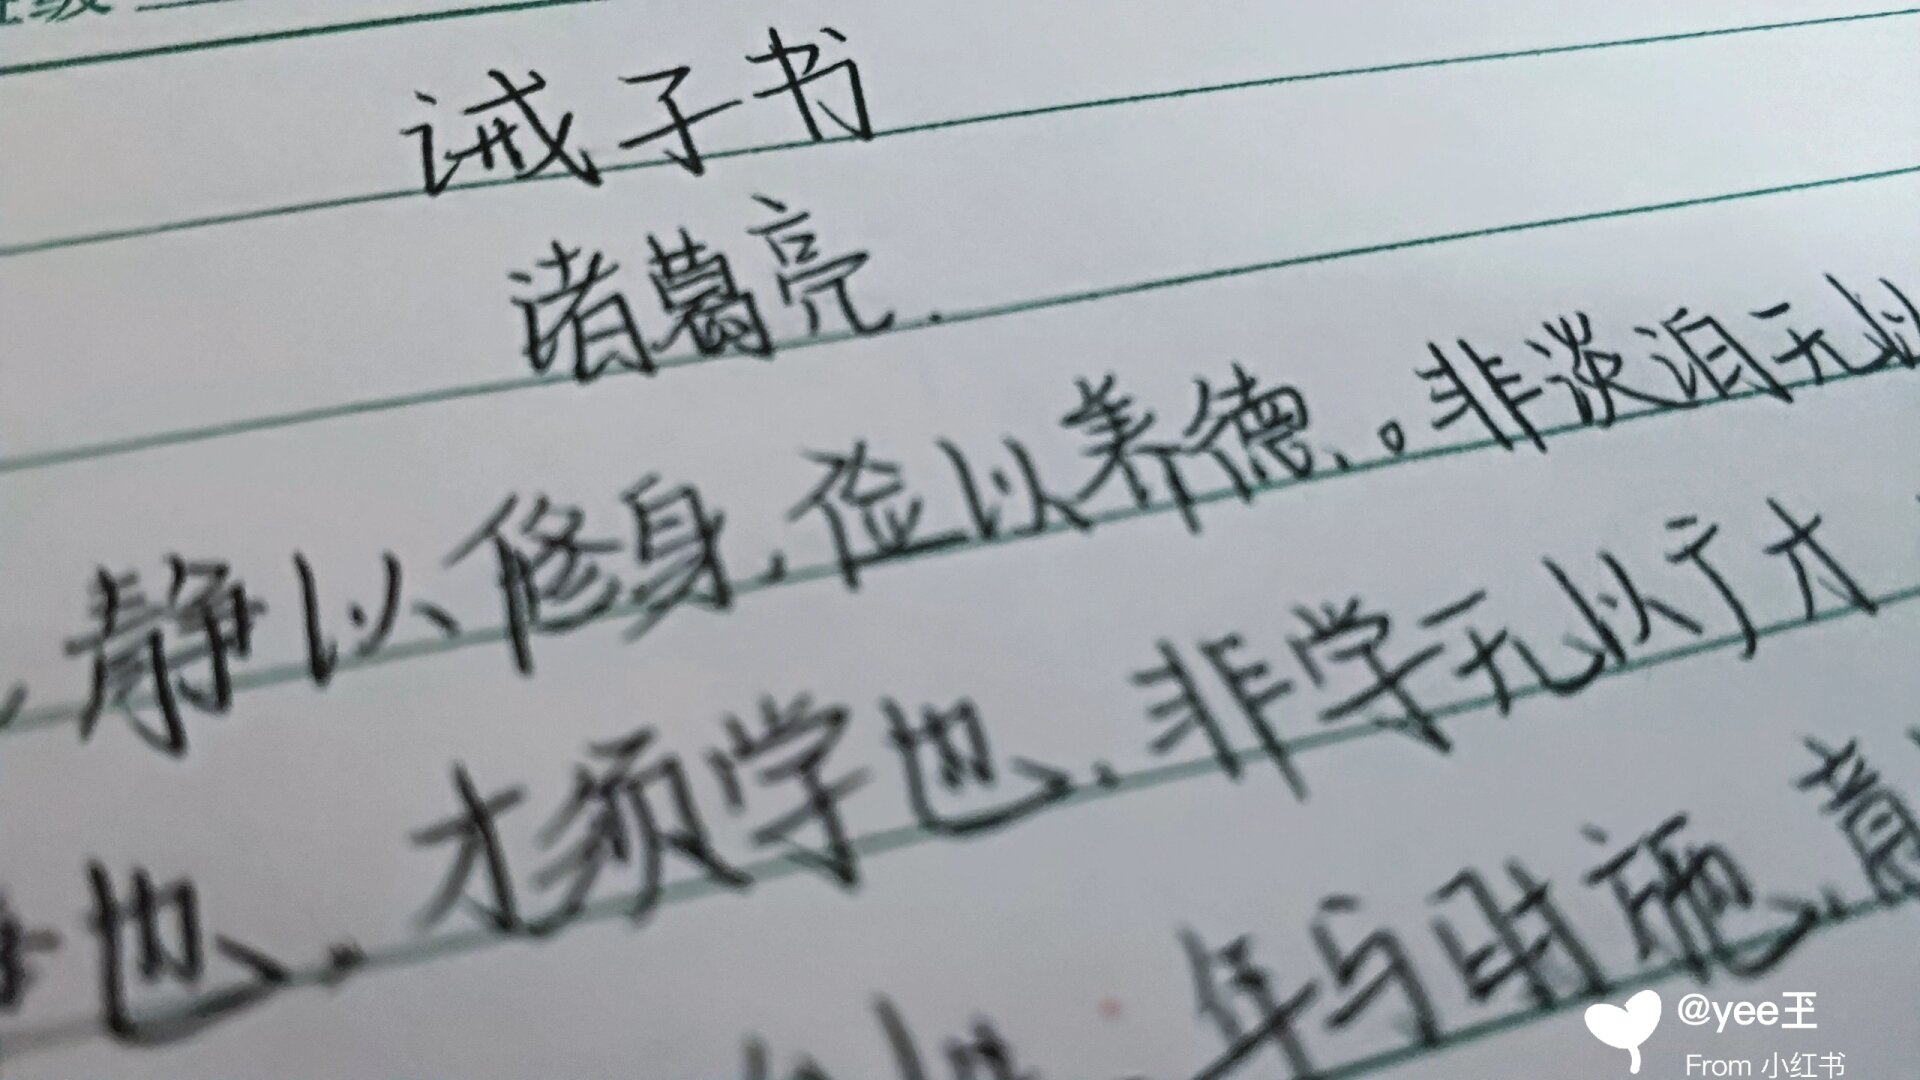 班级
诫子书
诸葛亮.
，静以修身，俭以养德。非淡泊无以
学也，才须学也，非学无以广才
年与时驰，意
@yee玊
From 小红书